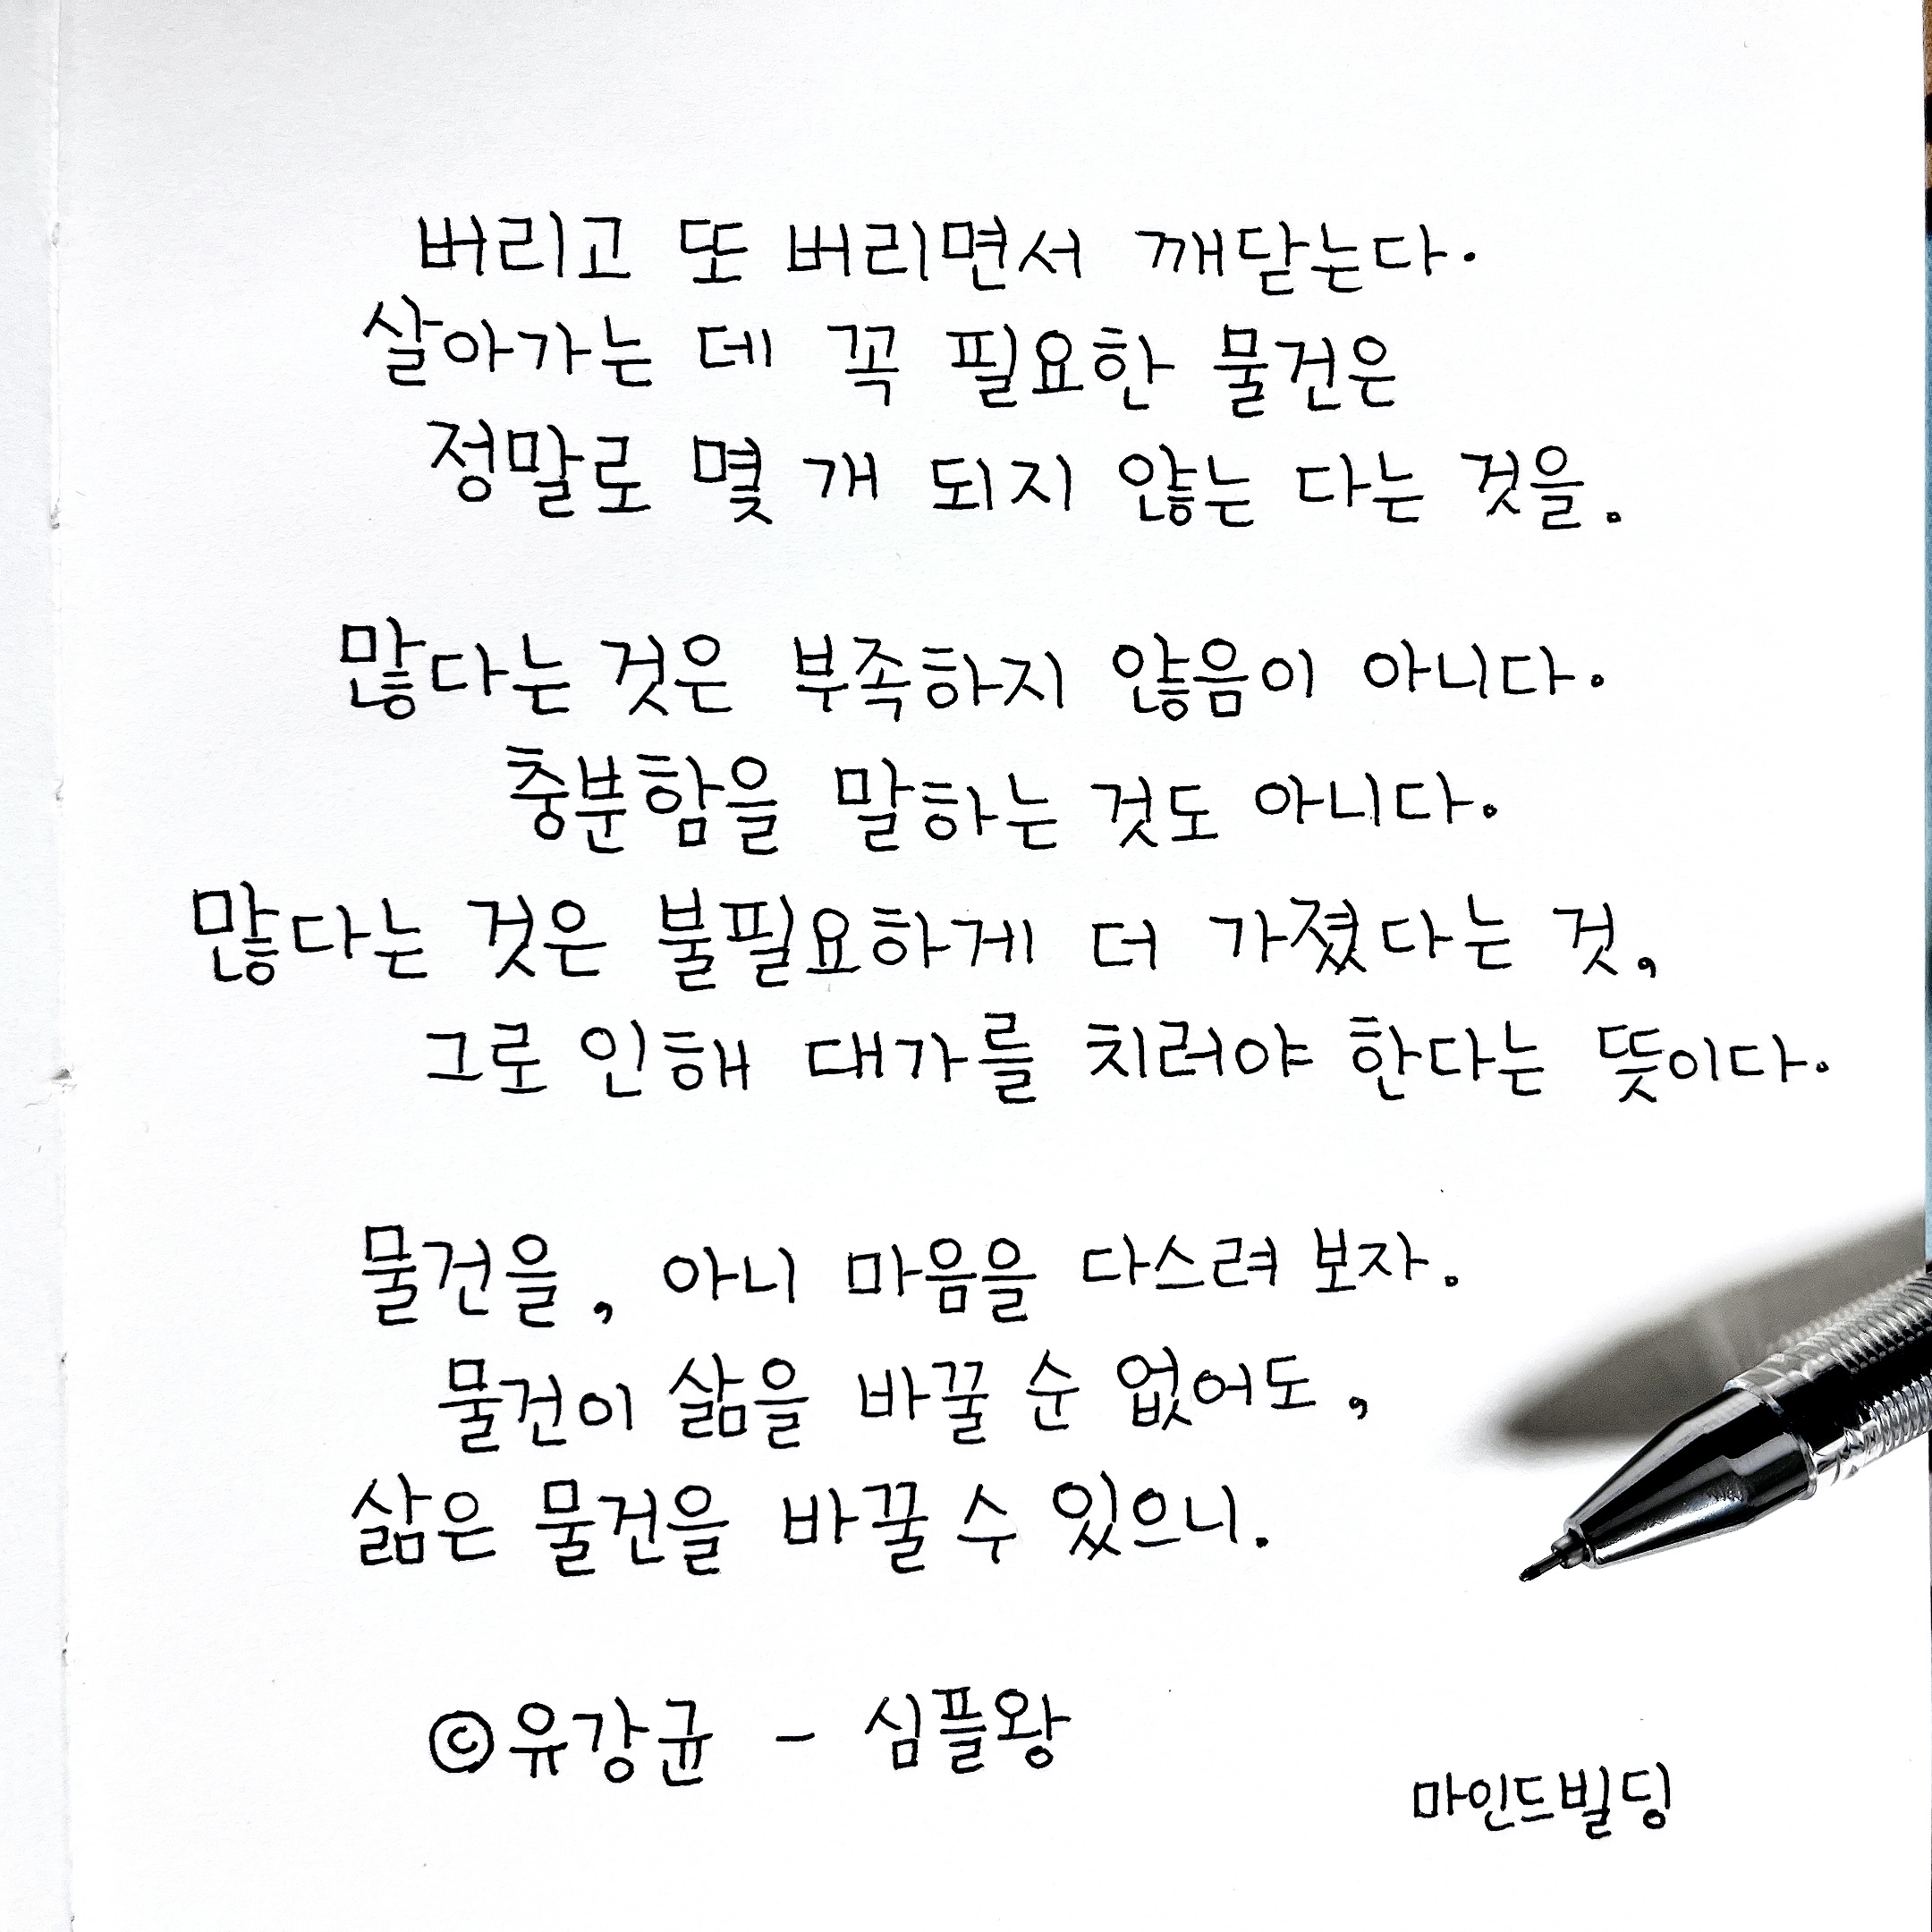 버리고 또 버리면서 깨닫는다.
살아가는 데 꼭 필요한 물건은
정말로 몇 개 되지 않는 다는 것을.
많다는 것은 부족하지 않음이 아니다.
충분함을 말하는 것도 아니다.
많다는 것은 불필요하게 더 가졌다는 것,
그로 인해 대가를 치러야 한다는 뜻이다.
물건을, 아니 마음을 다스려 보자.
물건이 삶을 바꿀 순 없어도,
삶은 물건을 바꿀 수 있으니.
©유강균 - 심플왕
마인드빌딩